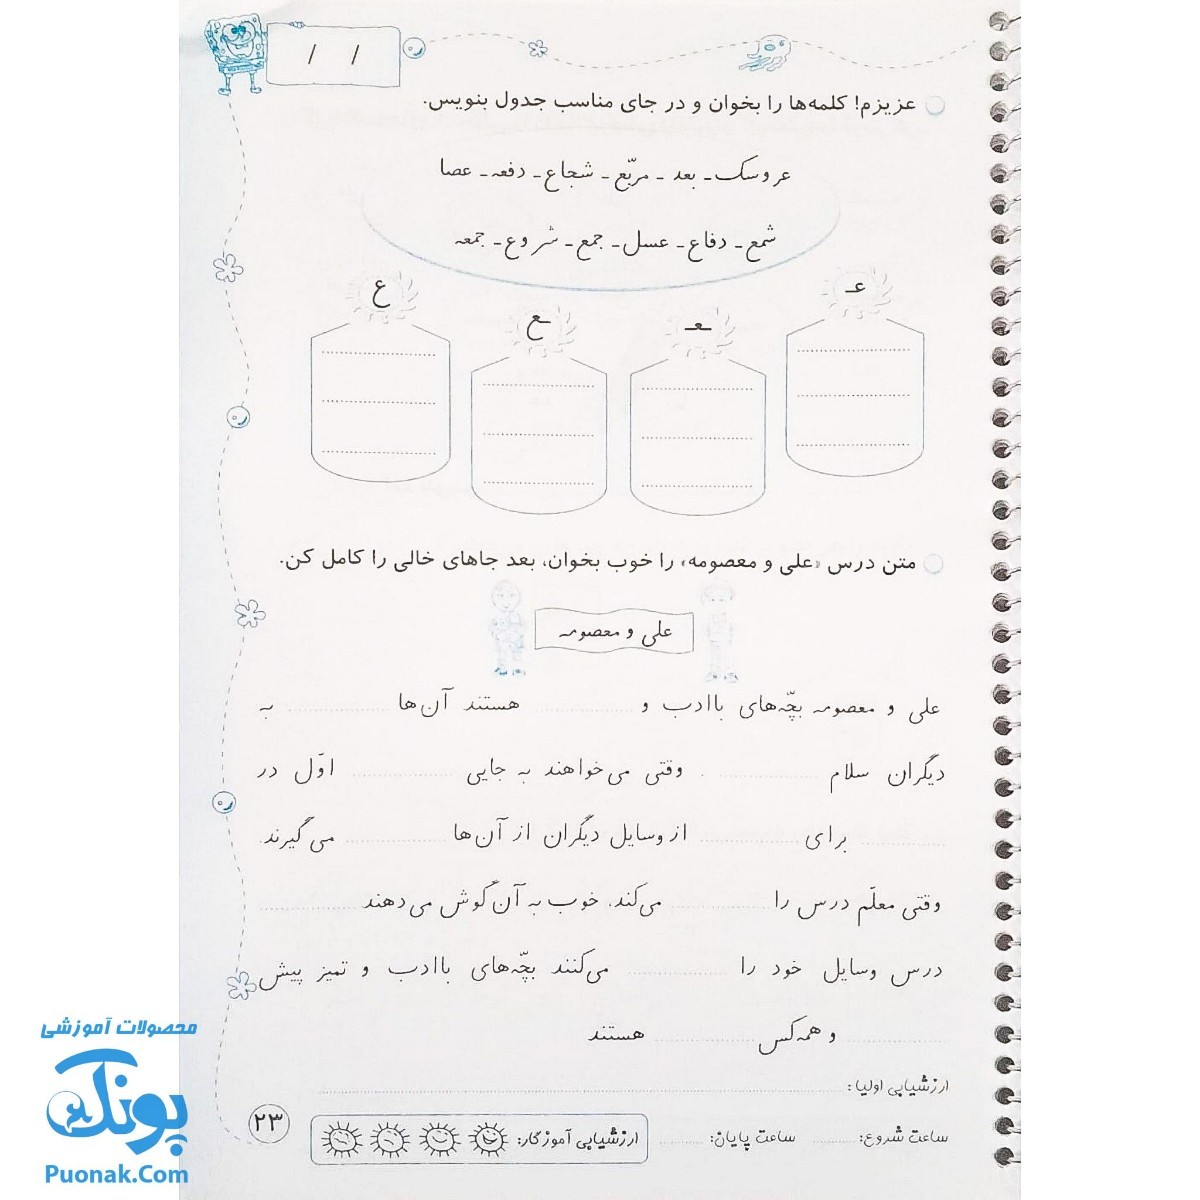 / /
عزیزم! کلمه‌ها را بخوان و در جای مناسب جدول بنویس.
عروسک ـ بعد ـ مربّع ـ شجاع ـ دفعه ـ عصا
شمع ـ دفاع ـ عسل ـ جمع ـ شروع ـ جمعه
عـ ـعـ ـع ع
متن درس «علی و معصومه» را خوب بخوان، بعد جاهای خالی را کامل کن.
علی و معصومه
علی و معصومه بچّه‌های باادب و .......... هستند آن‌ها .......... به
دیگران سلام .......... . وقتی می‌خواهند به جایی .......... اوّل در
.......... برای .......... از وسایل دیگران از آن‌ها .......... می‌گیرند.
وقتی معلّم درس را .......... می‌کند، خوب به آن گوش می‌دهند ..........
درس وسایل خود را .......... می‌کنند بچّه‌های باادب و تمیز پیش
.......... و همه‌کس .......... هستند
ارزشیابی اولیا: ..........
ساعت شروع: .......... ساعت پایان: .......... ارزشیابی آموزگار:
۲۳
محصولات آموزشی
پونک
Puonak.Com